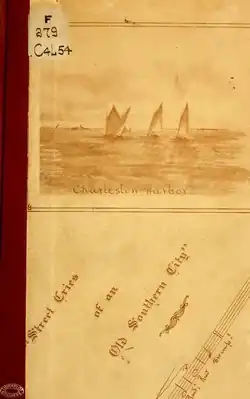 F
279
.C4L54
Charleston Harbor
"Street Cries
of an
Old Southern City"